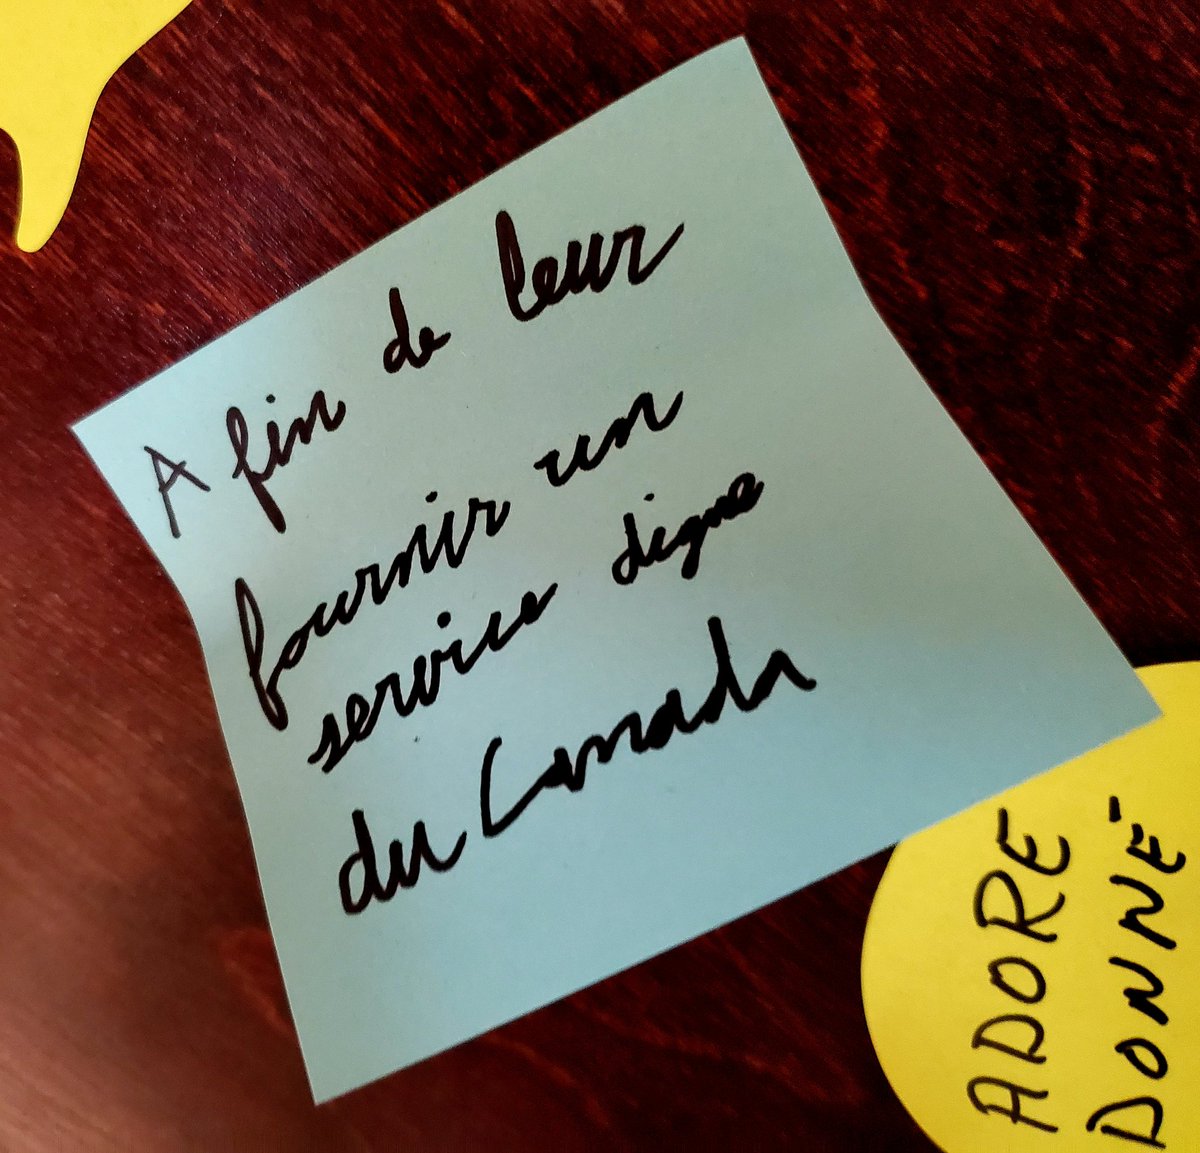 A fin de leur
fournir un
service digne
du Canada
ADORE
DONNÉ